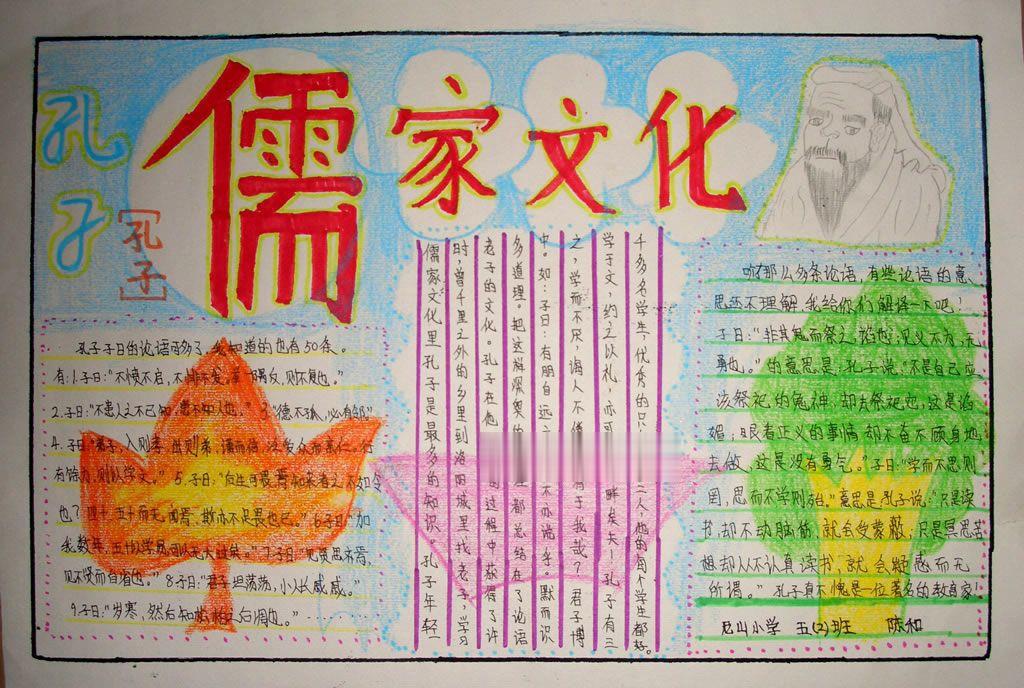 孔子
[孔子]
儒家文化
孔子子曰的论语可多了,我知道的也有50条。
有:1.子曰:"不愤不启,不悱不发,隅反,则不复也。"
2.子曰:"不患人之不己知,患不知人也。"3."德不孤,必有邻"
4.子曰:"弟子,入则孝,出则弟,谨而信,泛爱众而亲仁,行
有余力,则以学文。"5.子曰:"后生可畏,焉知来者之不如今
也?四十、五十而无闻焉,斯亦不足畏也已。"6.子曰:"加
我数年,五十以学易,可以无大过矣。"7.子曰:"见贤思齐焉,
见不贤而自省也。"8.子曰:"君子坦荡荡,小人长戚戚。"
9.子曰:"岁寒,然后知松柏之后凋也。"……
儒家文化里,孔子是最多的知识。孔子年轻
时,曾千里之外的乡里到洛阳城里找老子,学习
老子的文化。孔子在他的过解中,获得了许
多道理。把这些深奥的理都总结在了论语
中。如:子曰:有朋自远不亦说乎,默而识
之,学而不厌,诲人不倦有于我哉?君子博
学于文,约之以礼,亦可畔矣夫!孔子有三
千多名学生,优秀的只二人,他的每个学生都好。
那么多条论语,有些论语的意
思还不理解,我给你们解译一下吧!
子曰:"非其鬼而祭之,谄也;见义不为,无
勇也。"的意思是:孔子说:"不是自己应
该祭祀的鬼神,却去祭祀他,这是谄
媚;眼看正义的事情却不奋不顾身地
去做,这是没有勇气。子曰:"学而不思则
罔,思而不学则殆。"意思是孔子说:"只是读
书,却不动脑筋,就会受蒙蔽,只是冥思苦
想却从不认真读书,就会疑惑而无
所谓。"孔子真不愧是一位著名的教育家!
尼山小学 五(2)班 陈和